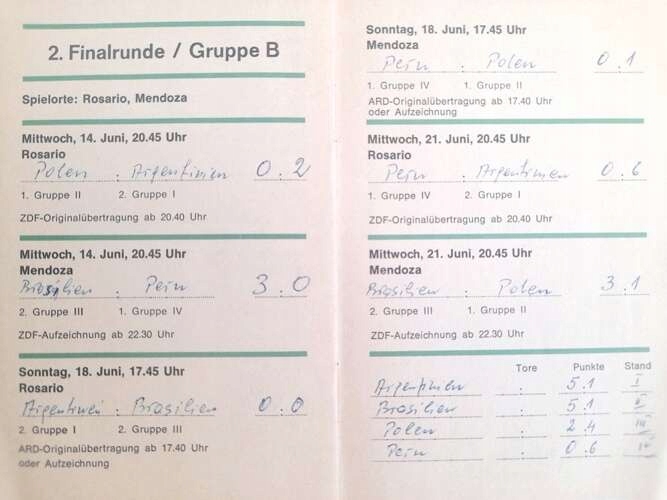 2. Finalrunde / Gruppe B
Spielorte: Rosario, Mendoza
Mittwoch, 14. Juni, 20.45 Uhr
Rosario
Polen : Argentinien 0 : 2
1. Gruppe II 2. Gruppe I
ZDF-Originalübertragung ab 20.40 Uhr
Mittwoch, 14. Juni, 20.45 Uhr
Mendoza
Brasilien : Peru 3 : 0
2. Gruppe III 1. Gruppe IV
ZDF-Aufzeichnung ab 22.30 Uhr
Sonntag, 18. Juni, 17.45 Uhr
Rosario
Argentinien : Brasilien 0 : 0
2. Gruppe I 2. Gruppe III
ARD-Originalübertragung ab 17.40 Uhr
oder Aufzeichnung
Sonntag, 18. Juni, 17.45 Uhr
Mendoza
Peru : Polen 0 : 1
1. Gruppe IV 1. Gruppe II
ARD-Originalübertragung ab 17.40 Uhr
oder Aufzeichnung
Mittwoch, 21. Juni, 20.45 Uhr
Rosario
Peru : Argentinien 0 : 6
1. Gruppe IV 2. Gruppe I
ZDF-Originalübertragung ab 20.40 Uhr
Mittwoch, 21. Juni, 20.45 Uhr
Mendoza
Brasilien : Polen 3 : 1
2. Gruppe III 1. Gruppe II
ZDF-Aufzeichnung ab 22.30 Uhr
Tore Punkte Stand
Argentinien : 5 : 1 I
Brasilien : 5 : 1 II
Polen : 2 : 4 III
Peru : 0 : 6 IV